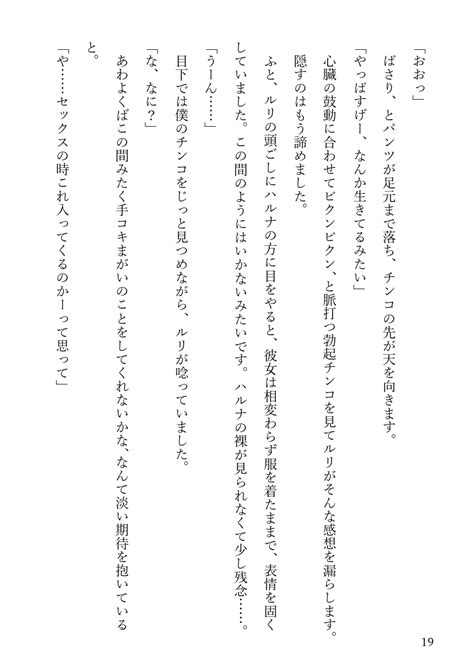 「おおっ」
ばさり、とパンツが足元まで落ち、チンコの先が天を向きます。
「やっぱすげー、なんか生きてるみたい」
心臓の鼓動に合わせてビクンビクン、と脈打つ勃起チンコを見てルリがそんな感想を漏らします。
隠すのはもう諦めました。
ふと、ルリの頭ごしにハルナの方に目をやると、彼女は相変わらず服を着たままで、表情を固く
していました。この間のようにはいかないみたいです。ハルナの裸が見られなくて少し残念……。
「うーん……」
目下では僕のチンコをじっと見つめながら、ルリが唸っていました。
「な、なに？」
あわよくばこの間みたく手コキまがいのことをしてくれないかな、なんて淡い期待を抱いている
と。
「や……セックスの時これ入ってくるのかーって思って」
19